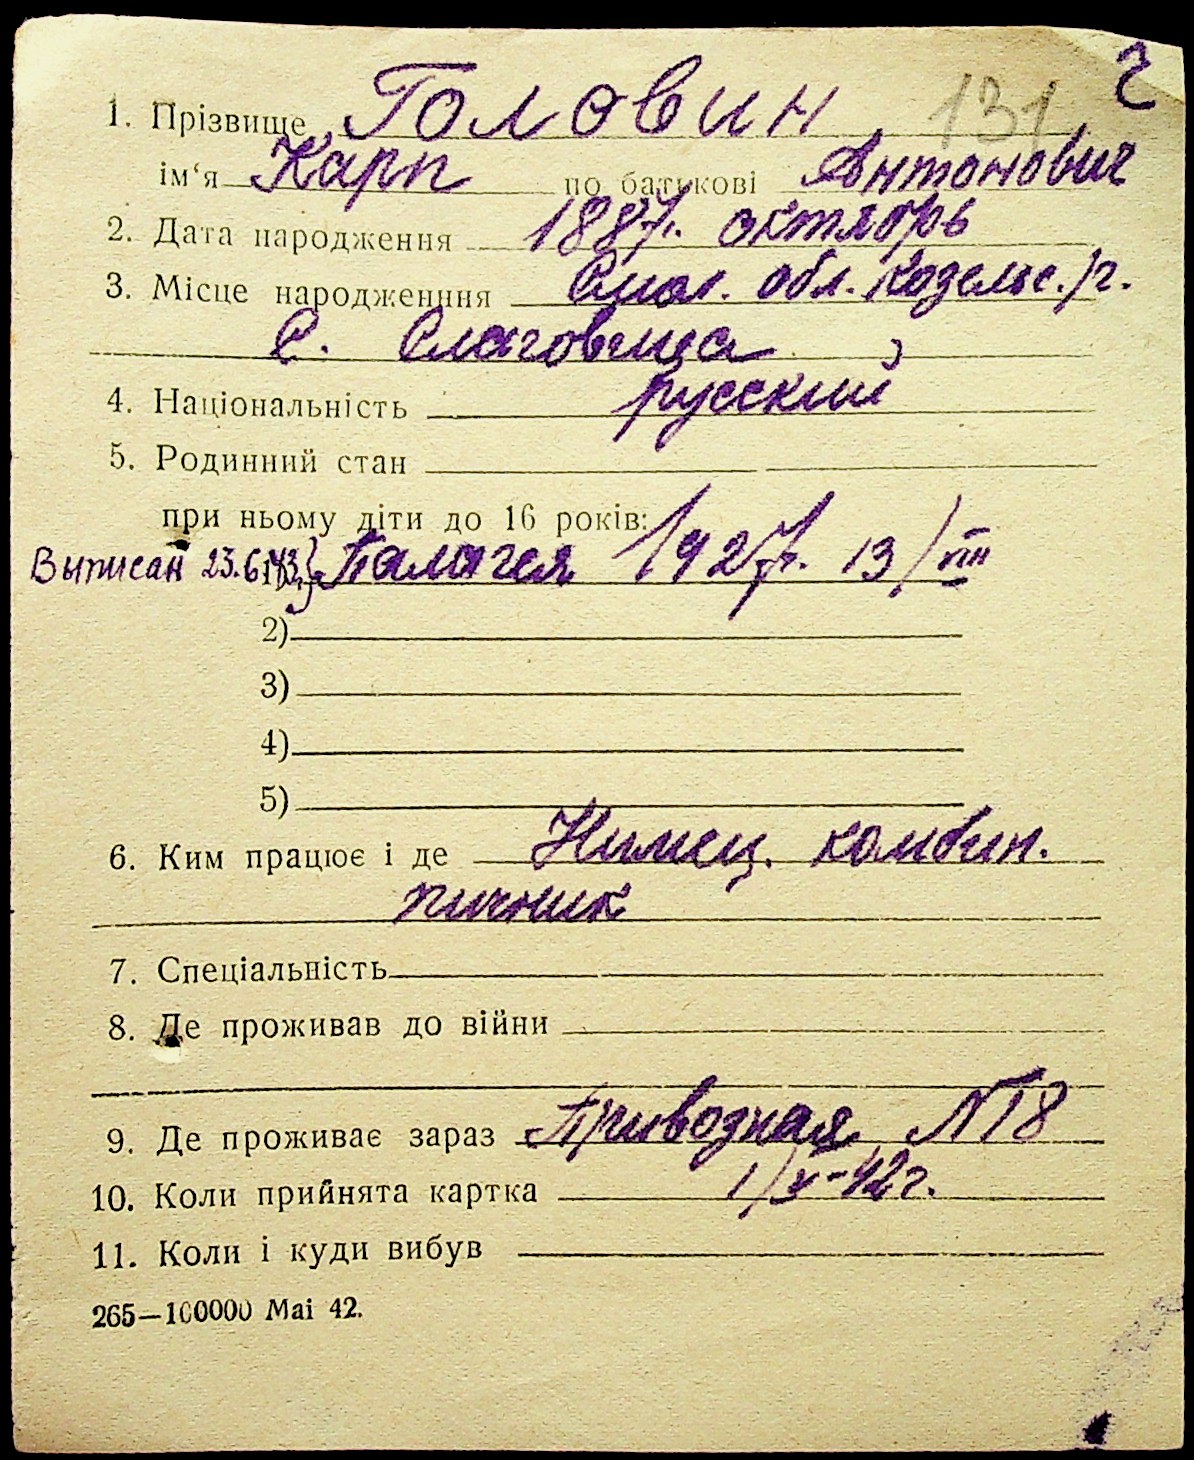 Г
131
1. Прізвище Головин
ім‘я Карп по батькові Антонович
2. Дата народження 1887г. октябрь
3. Місце народженння Смол. обл. Козельс. р.
С. Слаговища
4. Національність русский
5. Родинний стан
при ньому діти до 16 років:
Выписан 23.6.43. Палагея 1927г. 13/
2)
3)
4)
5)
6. Ким працює і де Нимец. комбин.
пичник
7. Спеціальність
8. Де проживав до війни
9. Де проживає зараз Привозная N18
10. Коли прийнята картка 1/X-42г.
11. Коли і куди вибув
265—100000 Mai 42.